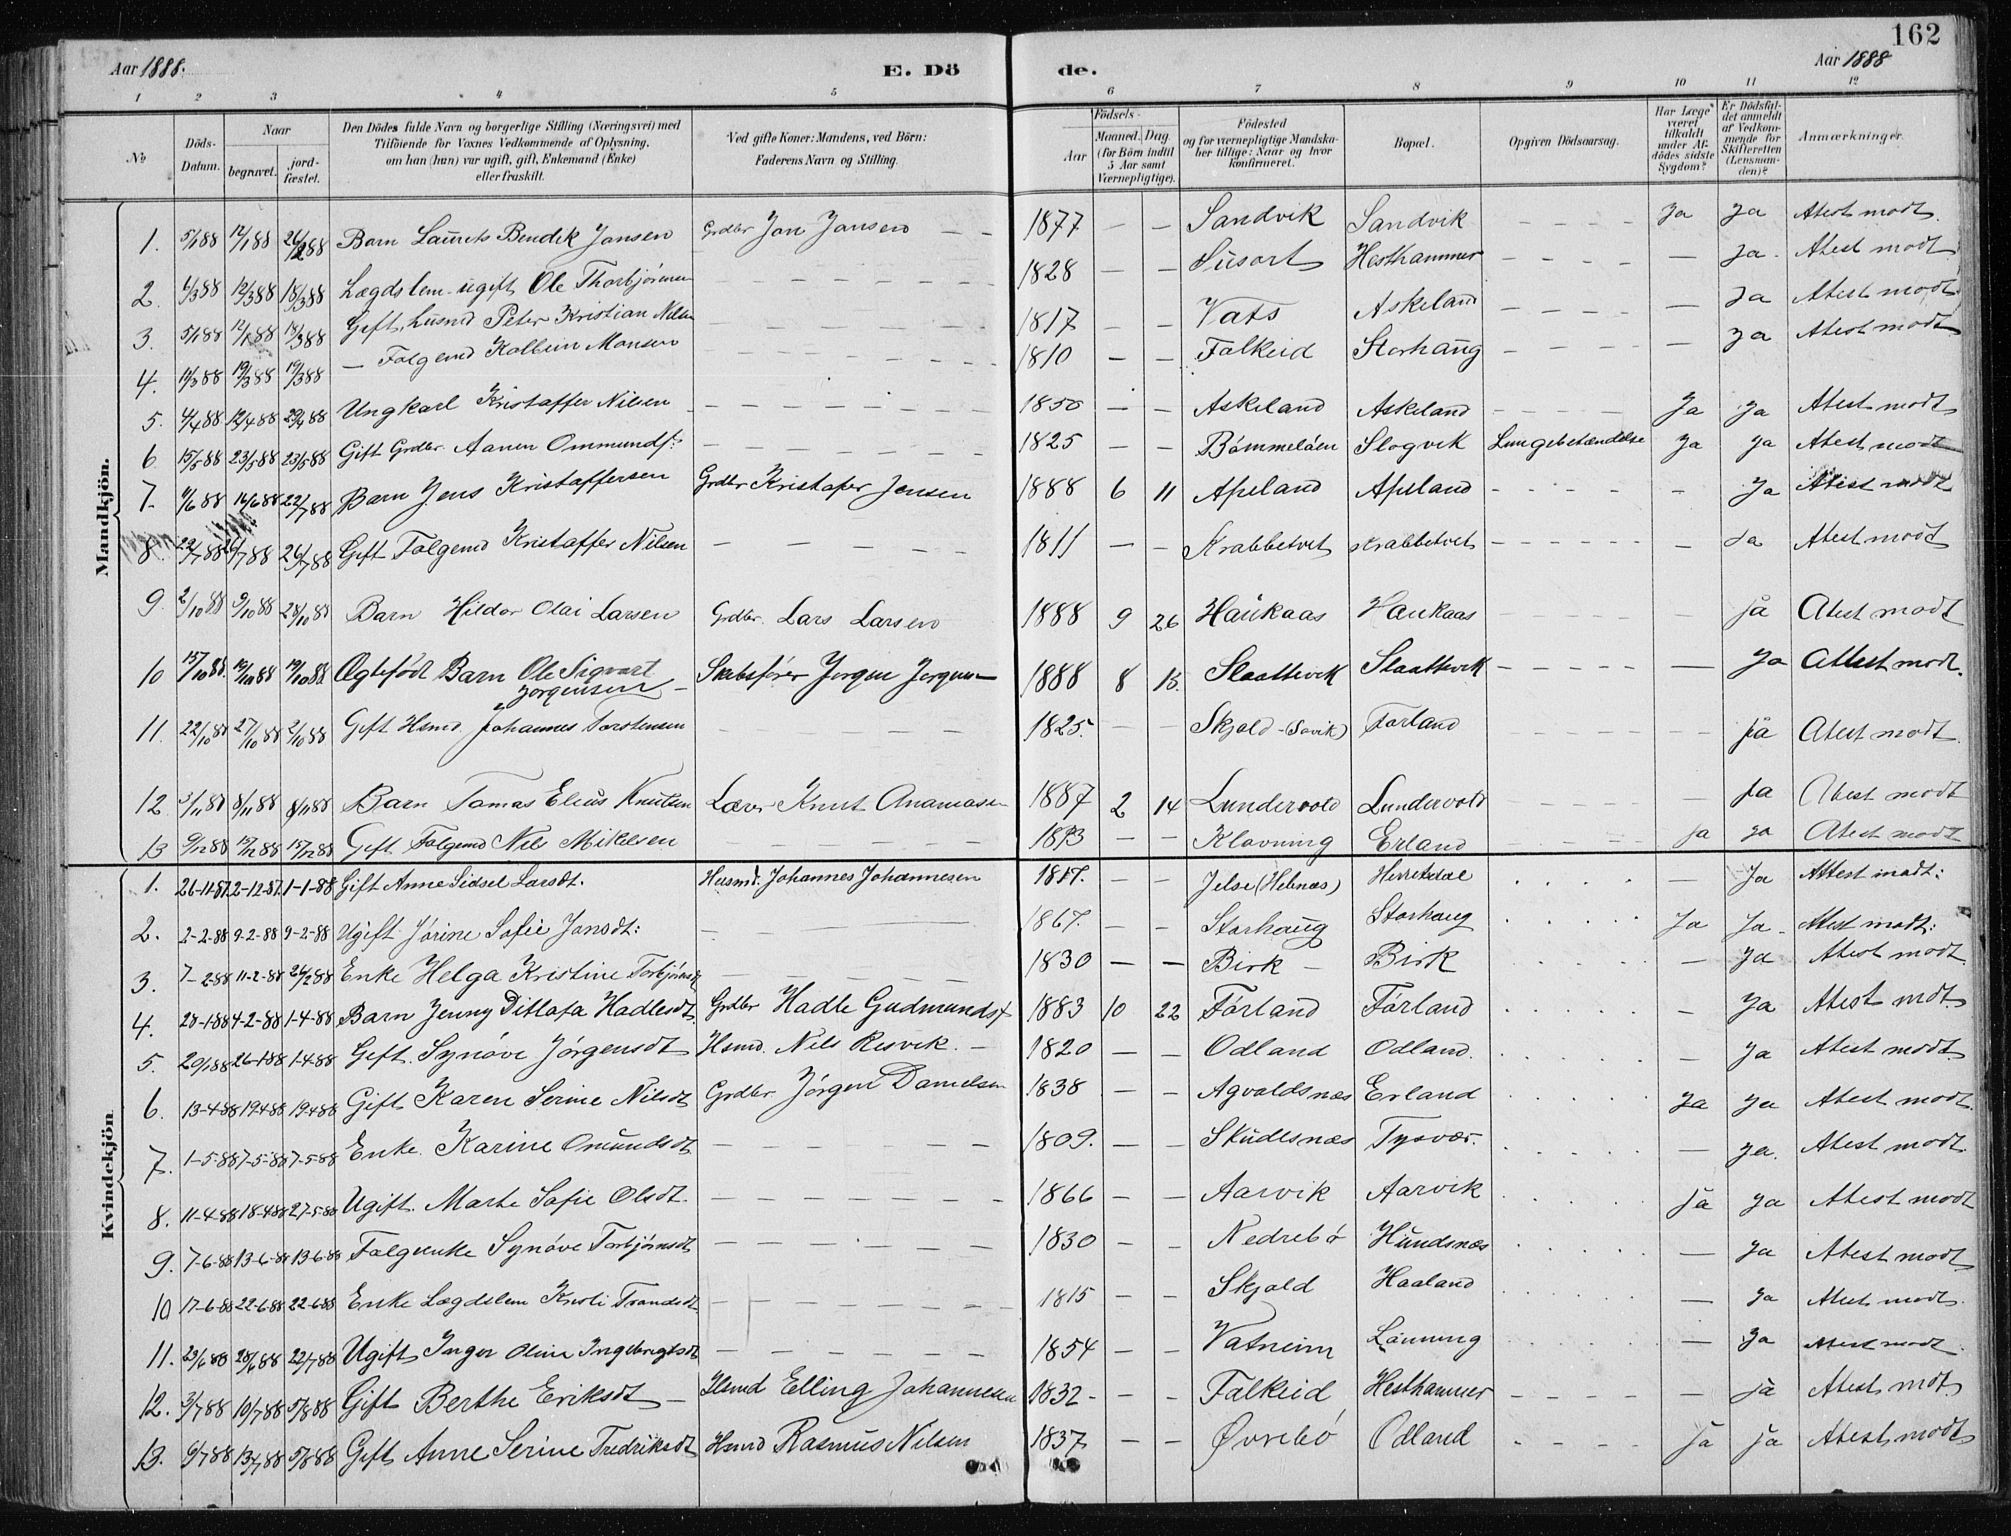 162
Aar 1888.
E. Dö
de.
Aar 1888
1 2 3 4 5 6 7 8 9 10 11 12
No
Döds-Datum.
Naar
begravet.
jord-fæstet.
Den Dödes fulde Navn og borgerlige Stilling (Næringsvei) med
Tilföiende for Voxnes Vedkommende af Oplysning,
om han (hun) var ugift, gift, Enkemand (Enke)
eller fraskilt.
Ved gifte Koner: Mandens, ved Börn:
Faderens Navn og Stilling.
Födsels-
Aar
Maaned. Dag.
(for Börn indtil
5 Aar samt
Værnepligtige).
Födested
og for værnepligtige Mandska-
ber tillige: Naar og hvor
konfirmeret.
Bopæl.
Opgiven Dödsaarsag.
Har Læge
været
tilkaldt
under Af-
dödes sidste
Sygdom?
Er Dödsfal-
det anmeldt
af Vedkom-
mende for
Skifteretten
(Lensman-
den)?
Anmærkninger.
Mandkjön.
1. 5/1 88 12/1 88 26/2 88 Barn Laurets Bendik Jansen Grdbr Jan Jansen - - 1877 - - Sandvik Sandvik - - - - Ja Ja Atest modt.
2. 6/3 88 12/3 88 18/3 88 Lægdslem ugift Ole Thorbjørnsen - - - - 1828 - - Susort Hesthammer - - - - - Ja. Atest modt
3. 5/1 88 12/1 88 18/3 88 Gift Husmd Peter Kristian Nilsen - - - - 1817 - - Vats Askeland - - - - - Ja Atest modt
4. 14/3 88 19/3 88 19/3 88 - Folgemd Kolbein Monsen - - - - 1810 - - Falkeid Storhaug - - - - - Ja Atest modt
5. 4/4 88 12/4 88 29/4 88 Ungkarl Kristaffer Nilsen - - - - 1850 - - Askeland Askeland - - - - Ja Ja Atest modt
6 15/5 88 23/5 88 23/5 88 Gift Grdbr. Aanen Ommunds: - - - - 1825 - - Bømmeløen Slogvik Lungebetændelse Ja Ja Atest modt
7. 11/6 88 16/6 88 22/7 88 Barn Jens Kristaffersen Grdbr Kristafer Jensen 1888 6 11 Apeland Apeland - - - - - Ja Atest modt
8. 22/7 88 26/7 88 26/7 88 Gift Folgemd Kristaffer Nilsen - - - - 1811 - - Krabbetvet Krabbetvet - - - - - Ja Atest modt
9. 2/10 88 9/10 88 28/10 88 Barn Hildor Olai Larsen Grdbr. Lars Larsen 1888 9 26 Haukaas Haukaas - - - - - ja Atest modt
10 15/10 88. 19/10 88 19/10 88 Ægtefødt Barn Ole Sigvart
Jørgensen - Skibsfører Jørgen Jørgensen 1888 8 Slaattevik Slaattevik - - - - - Ja Attest modt.
11. 22/10 88 27/10 88 2/10 88 Gift Hsmd. Johannes Torstensen - - - - 1825. - - Skjold-(Søvik) Førland - - - - - ja Atest modt.
12 3/11 88 8/11 88 8/11 88 Barn Tomas Elius Knutsen Lærer Knut Anamasen 1887 2 14 Lundervold Lundervold - - - - - ja Atest modt
13 9/12 88 15/12 88 15/12 88 Gift Folgemd Nils Mikelsen - - - - 1813 - - Klovning Erland - - - - ja ja Atest modt
Kvindekjön
1. 26-11-87. 2-12-87. 1-1-88 Gift Anne Sidsel Larsdt. Husmd. Johannes Johannesen 1817. - - Jelse (Hebnæs) Herretsdal . . . . - Ja Attest modt:
2. 2-2-88 9-2-88 9-2-88 Ugift Jørine Sofie Jonsdt: - 1867. - - Storhaug Storhaug . . . . Ja Ja - Attest modt:
3. 7-2-88 11-2-88 26/2 88 Enke Helga Kristine Torbjørnsdt - - - - 1830 - - Birk - Birk . . . . - Ja Atest modt.
4. 28-1-88 4-2-88 1-4-88 Barn Jenny Ditlafa Hadlesdt. Grdbr Hadle Gudmunds. 1883 10 22 Førland Førland . . . . - Ja Atest mdt.
5. 20/1 88 26-1-88 1-4-88 Gift. Synøve Jørgensdt Hsmd. Nils Resvik. - 1820 - - Odland Odland. . . . . - Ja Atest modt.
6. 13-4-88 19-4-88 19-4-88 Gift Karen Serine Nilsdt Grdbr. Jørgen Danielsen 1838 - - Agvaldsnæs Erland . . . . Ja Ja Atest modt.
7. 1-5-88 7-5-88 7-5-88 Enke Karine Omundsdt - - - - 1809. - - Skudesnæs Tysvær. . . . . - Ja. Atest modt.
8. 11-4-88 18-4-88 27-5-88 Ugift. Marte Sofie Olsdt. - - - - 1866 - - Aarvik Aarvik . . . . Ja Ja Atest modt
9. 7-6-88 13-6-88 13-6-88 Folgeenke Synøve Torbjørnsdt - - - - 1830 - - Nedrebø Hundsnæs . . . . - Ja Atest modt
10 17-6-88 22-6-88 22-6-88 Enke Lægdslem Kirsti Trondsdt - - - - 1815 - - Skjold Haaland . . . . - Ja Atest modt.
11. 23/6 88 28/6 88 22/7 88 Ugift Inger Oline Ingebrigtsdt - - - - 1854 - - Vatneim Lønning . . . . - Ja Atest modt.
12. 3/7 88 10/7 88 5/8 88 Gift Berthe Eriksdt - Hsmd Elling Johannesen 1832 - - - Falkeid Hesthammer - - - - - ja Atest mdt.
13. 6/7 88 13/7 88 5/8 88 Gift Anne Serine Fredriksdt Hsmd Rasmus Nilsen 1837 - - Øvrebø Odland - - - - Ja ja Atest modt